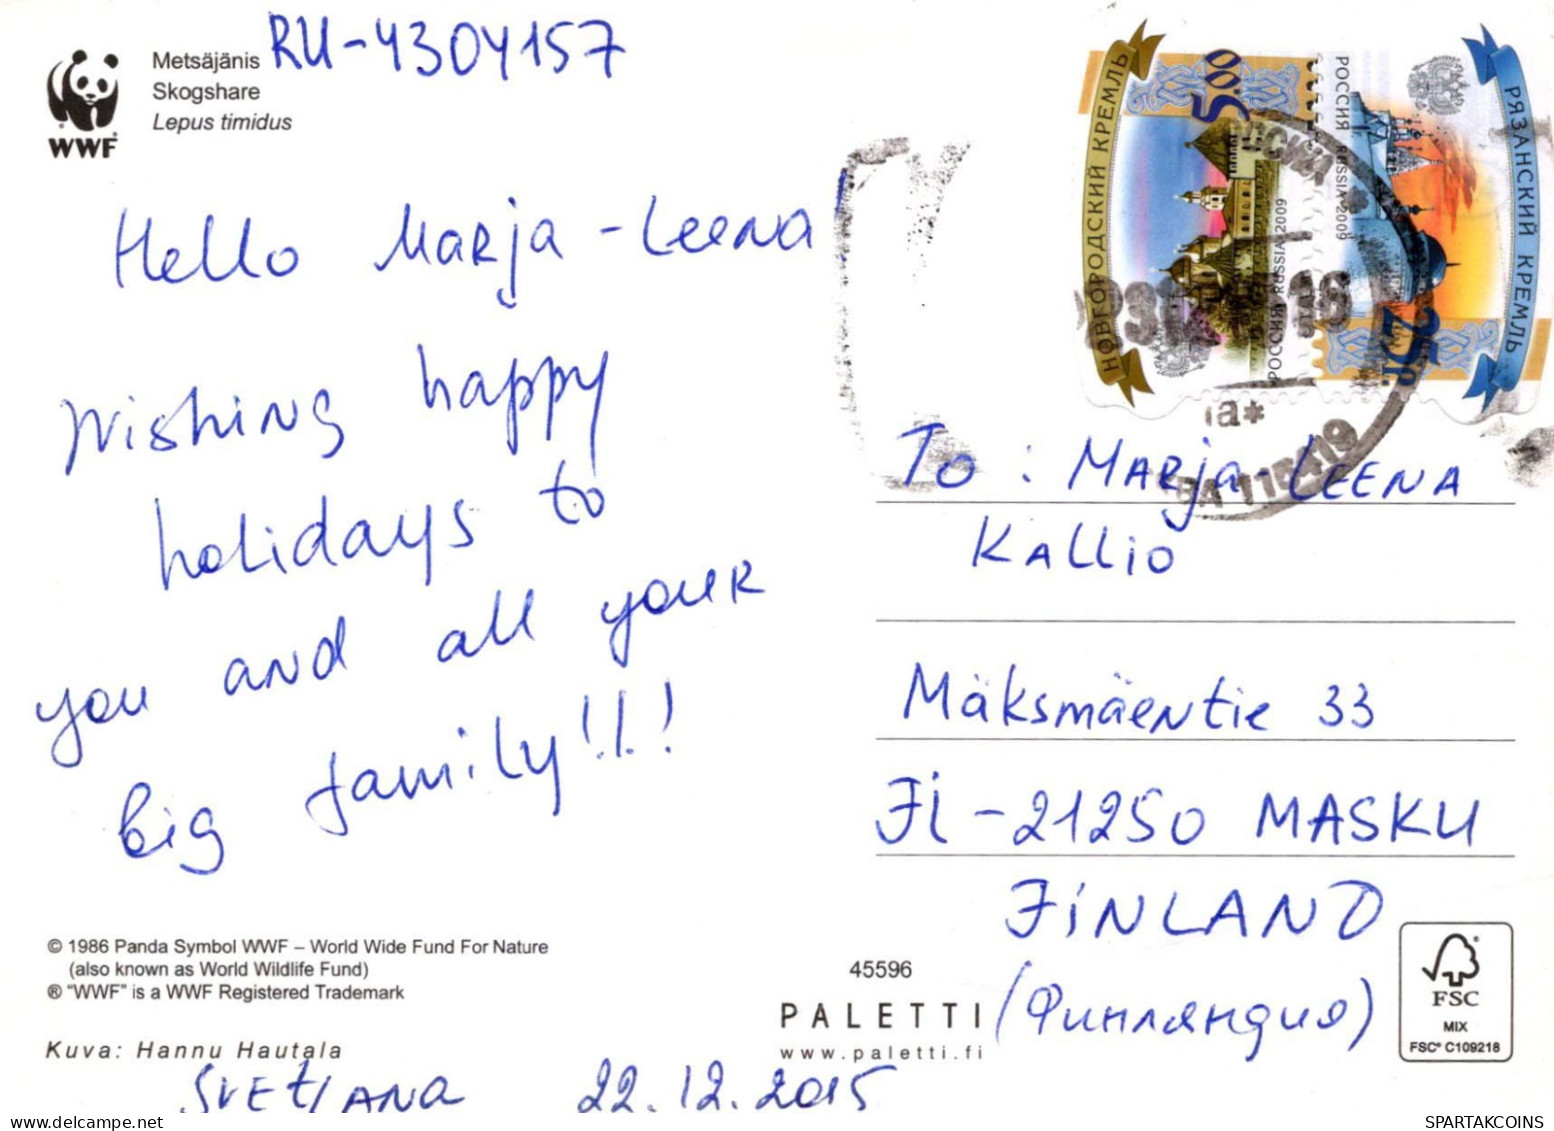 RU-4304157
Metsäjänis
Skogshare
Lepus timidus
WWF
Hello Marja-Leena!
Wishing happy
holidays to
you and all your
big family!!!
© 1986 Panda Symbol WWF – World Wide Fund For Nature
(also known as World Wildlife Fund)
® "WWF" is a WWF Registered Trademark
Kuva: Hannu Hautala
Svetlana 22.12.2015
НОВГОРОДСКИЙ КРЕМЛЬ
5.00
РОССИЯ RUSSIA 2009
РОССИЯ RUSSIA 2009
25р.
РЯЗАНСКИЙ КРЕМЛЬ
115419
To: Marja Leena
Kallio
Mäksmäentie 33
Fi-21250 MASKU
FiNLAND
(Финляндия)
45596
PALETTI
www.paletti.fi
FSC
MIX
FSC® C109218
SPARTAKCOINS